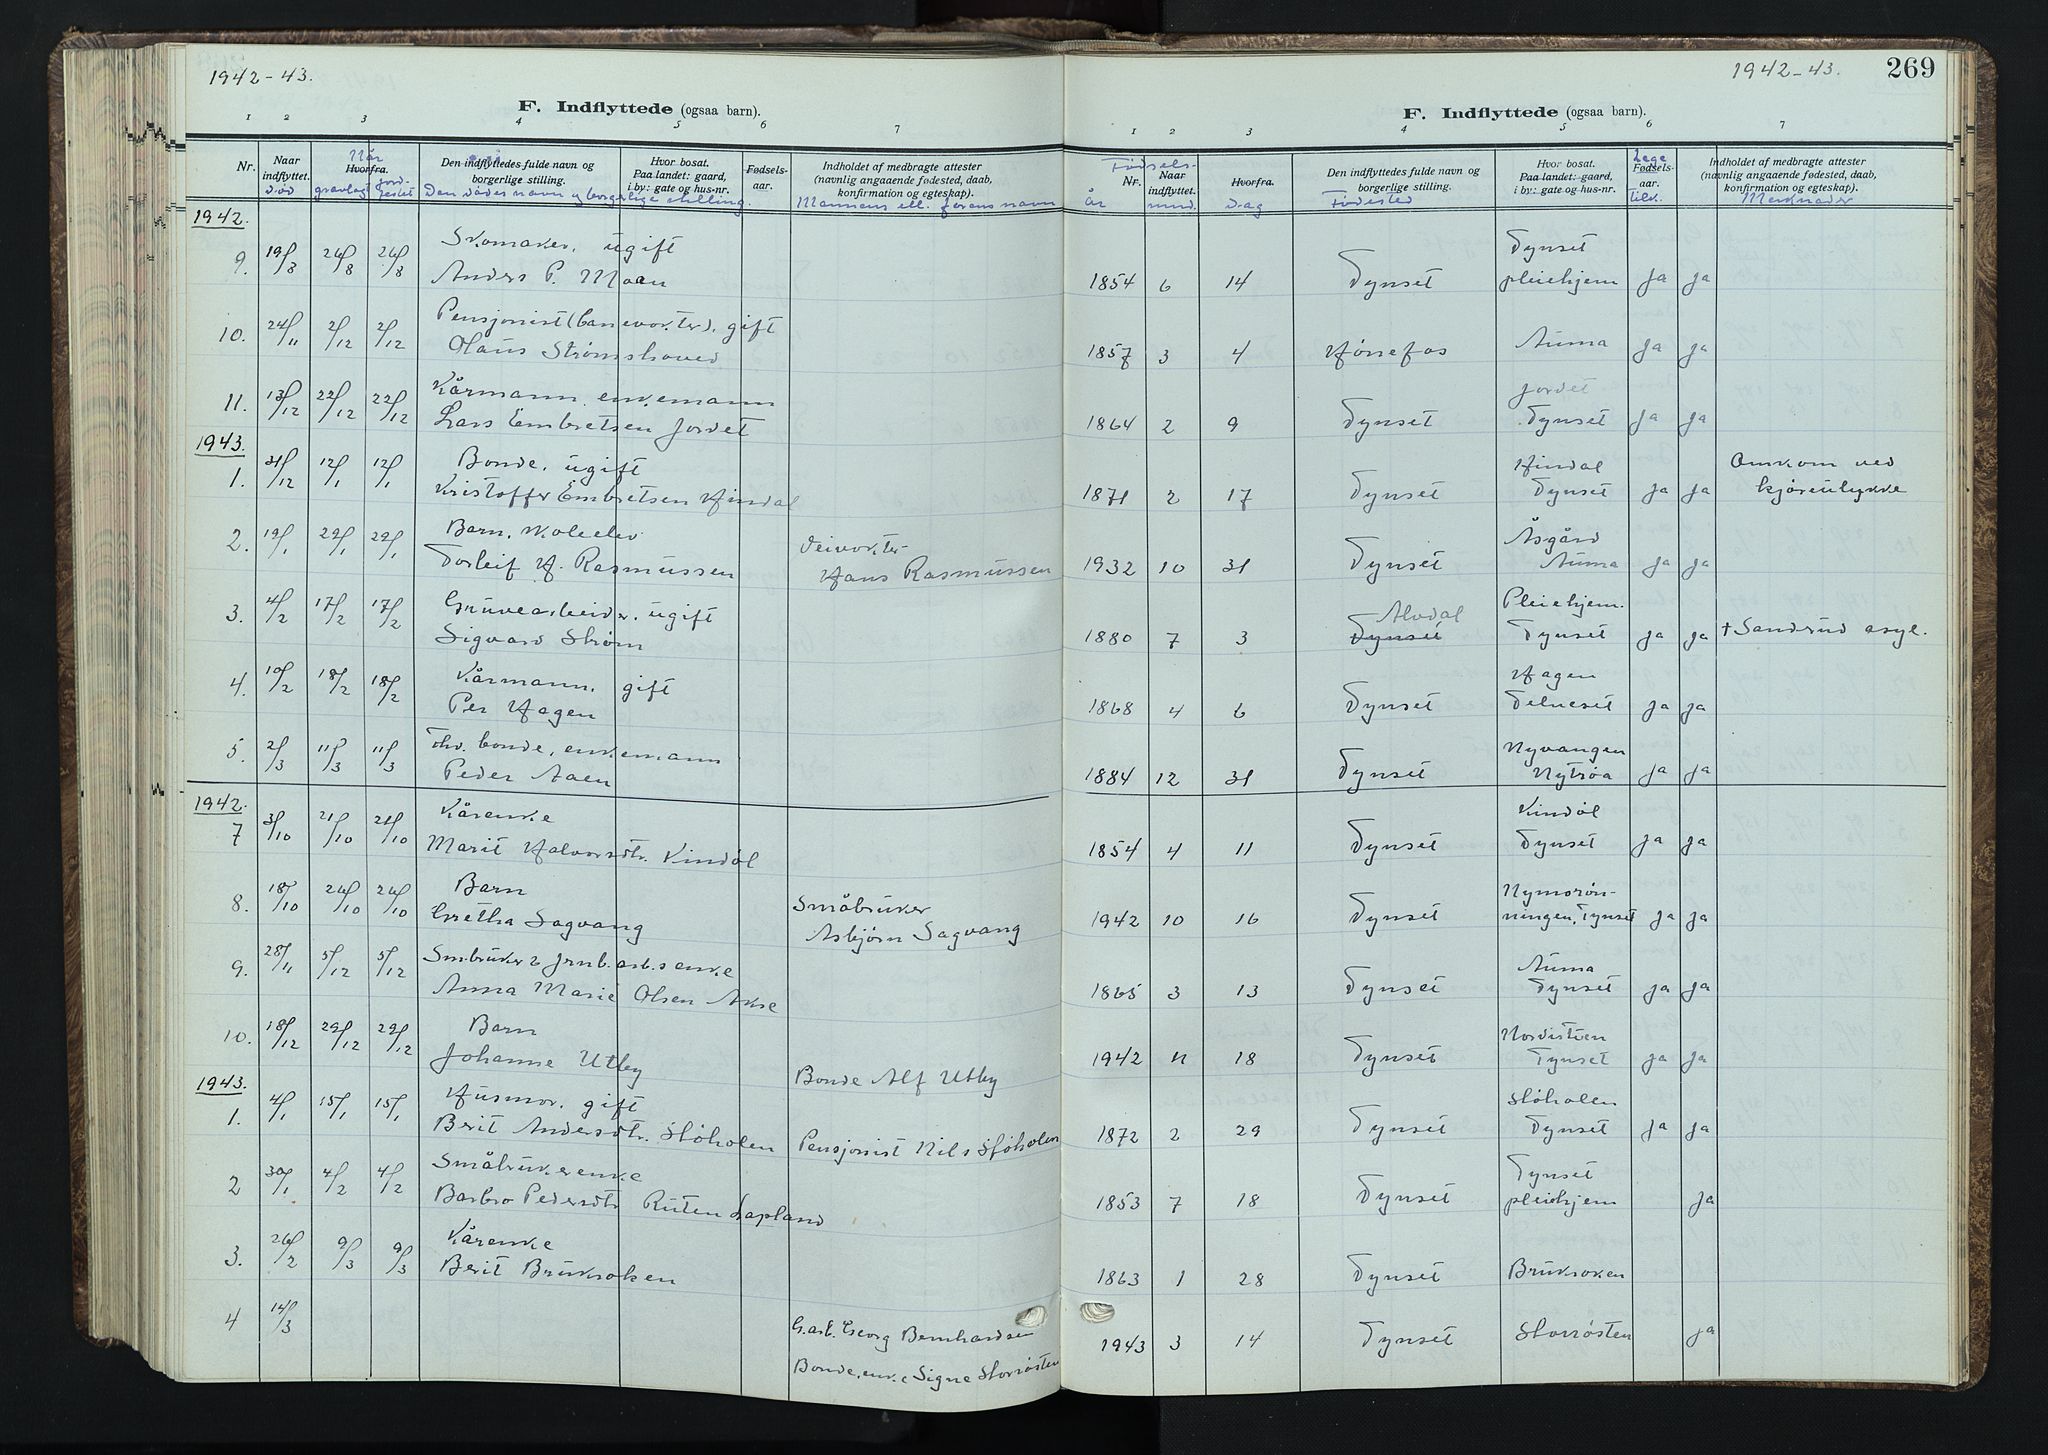 1942-43.
F. Indflyttede (ogsaa barn).
1 2 3 4 5 6 7
Nr. Naar indflyttet. Hvorfra. Den indflyttedes fulde navn og borgerlige stilling. Hvor bosat. Paa landet: gaard, i by: gate og hus-nr. Fødsels-aar. Indholdet af medbragte attester (navnlig angaaende fødested, daab, konfirmation og egteskap).
død Når gravlagt jord-festet Den dødes navn og borgerlige stilling. Mannens ell. farens navn
1942.
9. 19/8 26/8 26/8 Skomaker, ugift
Anders P. Moan
10. 24/11 2/12 2/12 Pensjonist (banevokter), gift
Olaus Strømshoved
11. 13/12 22/12 22/12 Kårmann enkemann
Lars Embretsen Jordet
1943.
1. 31/12 12/1 12/1 Bonde, ugift
Kristoffer Embretsen Hindal
2. 19/1 29/1 29/1 Barn, skoleelev Veivokter
Torleif H. Rasmussen Hans Rasmussen
3. 4/2 17/2 17/2 Gruvearbeider, ugift
Sigvard Strøm
4. 10/2 18/2 18/2 Kårmann, gift
Per Hagen
5. 2/3 11/3 11/3 Fhv. bonde, enkemann
Peder Aaen
1942.
7 3/10 21/10 21/10 Kårenke
Marit Halvorsdtr. Kindøl
8. 18/10 26/10 26/10 Barn Småbruker
Gretha Sagvang Asbjørn Sagvang
9. 28/11 5/12 5/12 Småbruker & jrnb.arb.s enke
Anna Marie Olsen Akse
10. 18/12 29/12 29/12 Barn
Johanne Utby Bonde Alf Utby
1943.
1. 4/1 15/1 15/1 Husmor, gift
Berit Andersdtr. Støholen Pensjonist Nils Støholen
2 30/1 4/2 4/2 Småbrukerenke
Barbro Pedersdtr Ruten Lapland
3. 26/2 9/3 9/3 Kårenke
Berit Bruksoken
4 14/3 G.arb. Georg Bernhardsen
Bonde, enke Signe Storrøsten
1942-43. 269
F. Indflyttede (ogsaa barn).
1 2 3 4 5 6 7
Nr. Naar indflyttet. Hvorfra. Den indflyttedes fulde navn og borgerlige stilling. Hvor bosat. Paa landet: gaard, i by: gate og hus-nr. Fødsels-aar. Indholdet af medbragte attester (navnlig angaaende fødested, daab, konfirmation og egteskap).
Fødsels- år mnd. dag Fødested Lege tilk. Merknader
Tynset
1854 6 14 Tynset pleiehjem Ja Ja
1857 3 4 Hønefos Auma Ja Ja
Jordet
1864 2 9 Tynset Tynset Ja Ja
Hindal Omkom ved
1871 2 17 Tynset Tynset Ja Ja kjøreulykke
Åsgård
1932 10 31 Tynset Auma Ja Ja
Alvdal Pleiehjem.
1880 7 3 Tynset Tynset Ja Ja † Sanderud asyl.
Hagen
1868 4 6 Tynset Telneset Ja Ja
Nyvangen
1884 12 31 Tynset Nytrøa Ja Ja
Kindøl
1854 4 11 Tynset Tynset Ja Ja
Nymorøn-
1942 10 16 Tynset ningen, Tynset Ja Ja
Auma
1865 3 13 Tynset Tynset Ja Ja
Nordistuen
1942 11 18 Tynset Tynset Ja Ja
Støholen
1872 2 29 Tynset Tynset Ja Ja
Tynset
1853 7 18 Tynset pleiehjem Ja
1863 1 28 Tynset Bruksoken
1943 3 14 Tynset Storrøsten Ja